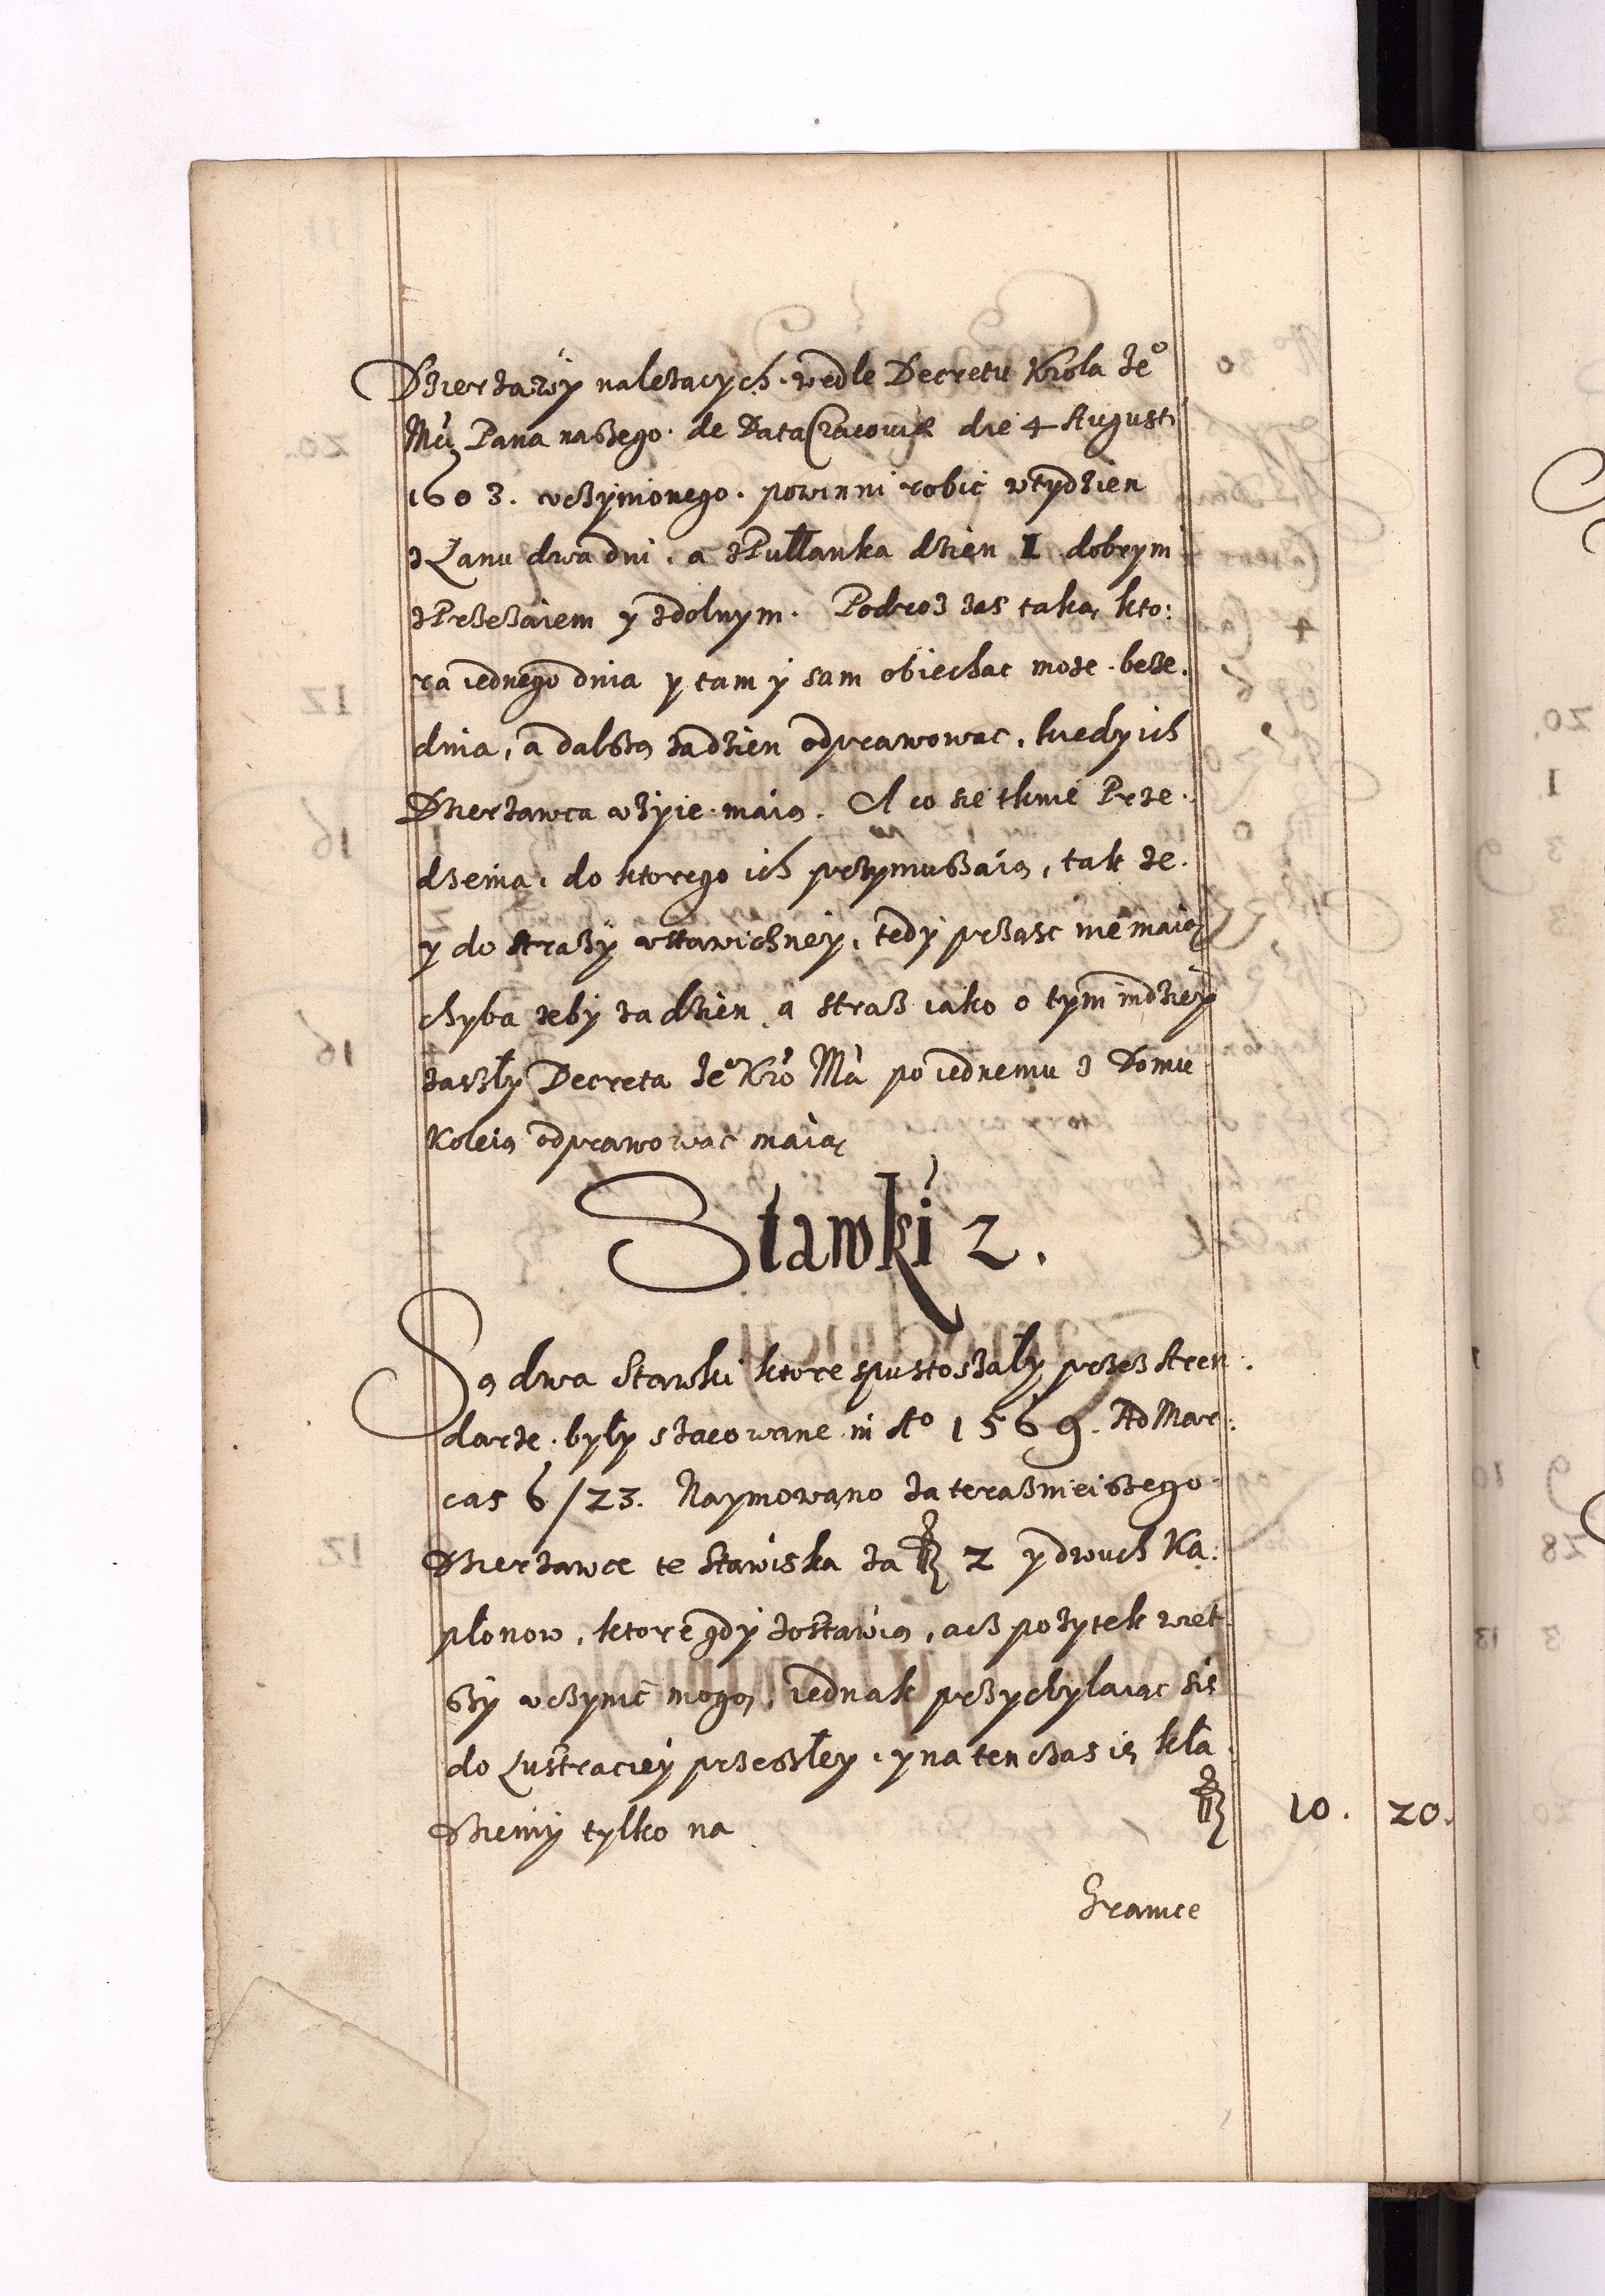 Dzierzawy należących. wedle Decretu Krola Je°
Mci Pana naszego. de Data Cracoviæ die 4 Augusti
1603. uczynionego. powinni robic w tydzien
z Łanu dwa dni. a z Pułłanka dzien 1 dobrym
z Przezaiem y zdolnym. Podroż zas taką kto:
ra iednego dnia y tam y sam obiechac może beze.
dnia, a dalszą za dzien odprawowac, kiedy ich
Dzierzawca użyie maią. A co sie tknie Prze.
dzenia, do ktorego ich przymuszaią, tak że.
y do straży ustawiczney, tedy prząsc nie maią
chyba żeby za dzien, a straż iako o tym indziey
zaszły Decreta Je° Kro Mci po iednemu z Domu
Koleią odprawowac maią
Stawki 2.
Są dwa Stawki ktore spustoszały przez Aren:
darze. były szacowane in A° 1569. Ad Mar:
cas 6/23. Naymowano za teraznieiszego
Dzierzawce te Stawiska za 2 y dwuch Ka:
płonow, ktore gdy zostawią, acz pożytek wiet
szy uczynic mogą, iednak przychylaiąc się
do Lustraciey przeszłey, y na ten czas ie kła.
dziemy tylko na 10. 20.
Granice